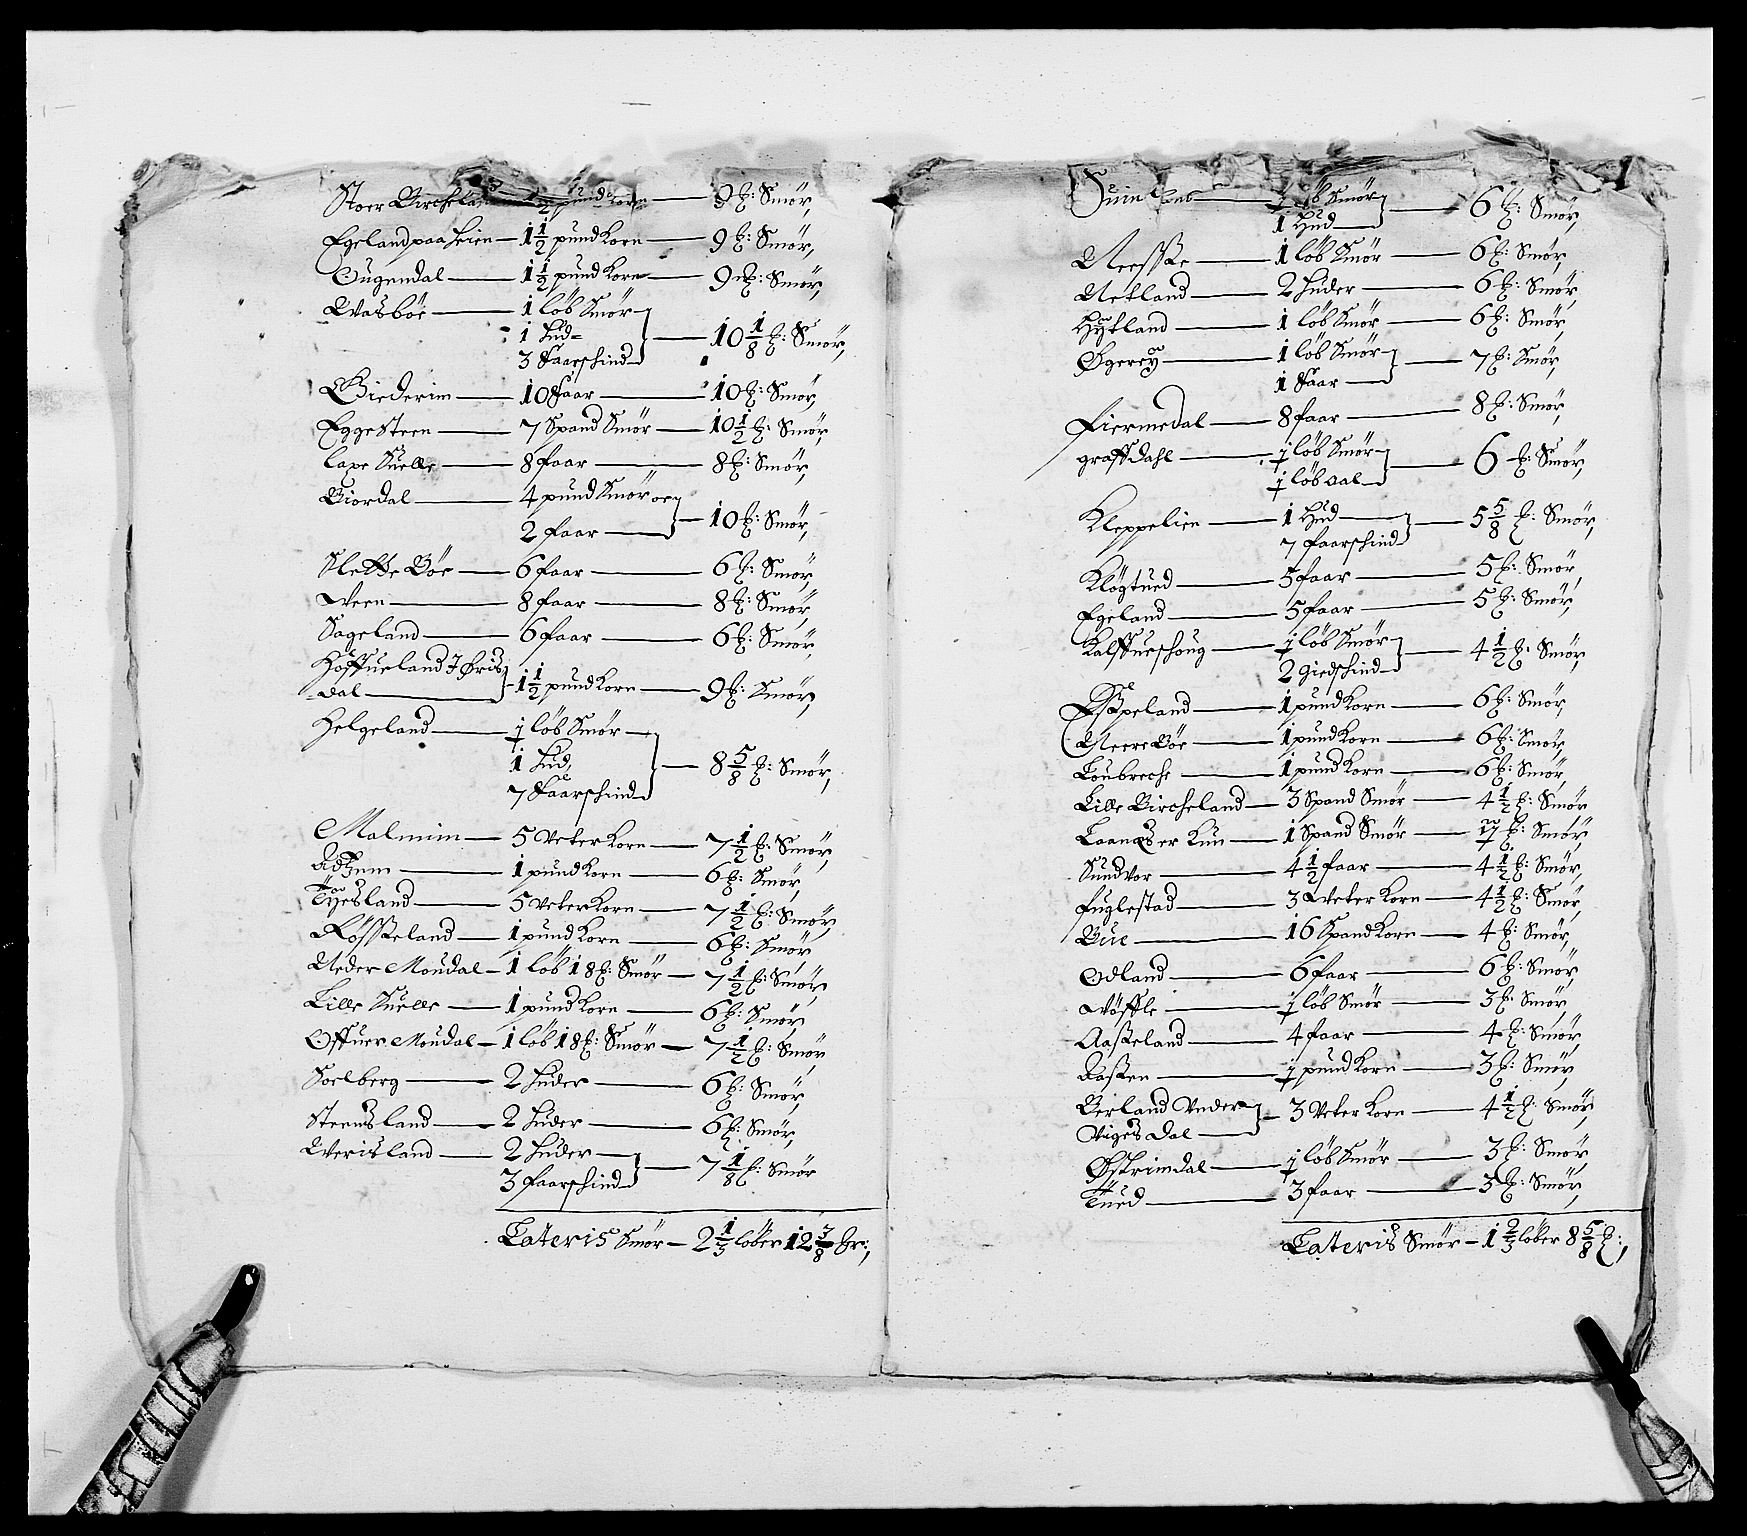 Stoer Birchelan 1 1/2 pund Korn — 9 ℔: Smør,
Egeland paa Heien — 1 1/2 pund Korn — 9 ℔: Smør,
Ougendal — 1 1/2 pund Korn — 9 ℔: Smør,
Wasböe — 1 löb Smör
1 Hud — 10 1/8 ℔: Smør,
3 Faarschind
Giederim — 10 Faar — 10 ℔: Smør,
Egge Steen — 7 Spand Smör — 10 1/2 ℔: Smør,
Laxe Suelle — 8 faar — 8 ℔: Smør,
Biordal — 4 pund Smör oc
2 faar — 10 ℔: Smør,
Slette Böe — 6 faar — 6 ℔: Smør
Veen — 8 faar — 8 ℔: Smør,
Sageland — 6 faar — 6 ℔: Smør,
Höffueland J Øris
dal — 1 1/2 pund Korn — 9 ℔: Smør,
Helgeland — 1/2 löb Smør
1 Hud, — 8 5/8 ℔: Smør,
7 Faarschind
Malmim — 5 Veter Korn — 7 1/2 ℔: Smør,
1 pund Korn — 6 ℔: Smør,
Tÿesland — 5 Veter Korn — 7 1/2 ℔: Smør,
Rösseland — 1 pund Korn — 6 ℔: Smør,
Neder Moudal — 1 löb 18 ℔: Smör — 7 1/2 ℔: Smør,
Lille Suelle — 1 pund Korn — 6 ℔: Smør,
Offuer Moudal — 1 löb 18 ℔: Smör — 7 1/2 ℔: Smør,
Soelberg — 2 Huder — 6 ℔: Smør,
Steensland — 2 Huder — 6 ℔: Smør,
Werisland — 2 Huder
3 faarschind — 7 1/8 ℔: Smør
Lateris Smör — 2 1/3 löber 12 3/8 ℔r:,
1/2 löb Smör
1 Hud — 6 ℔: Smør,
Neesse — 1 löb Smör — 6 ℔: Smør,
Netland — 2 Huder — 6 ℔: Smør,
Hÿtland — 1 löb Smör — 6 ℔: Smør,
Øgereÿ — 1 löb Smör
1 Faar — 7 ℔: Smør,
Fiermedal — 8 faar — 8 ℔: Smør,
graffdahl — 1/2 löb Smör
1/2 löb Sal — 6 ℔: Smør,
Kleppelien — 1 Hud
7 faarschind — 5 5/8 ℔: Smør,
Klögtued — 5 faar — 5 ℔: Smør
Egeland — 5 faar — 5 ℔: Smør,
Kalffueshoug — 1/2 löb Smör
2 giedschind — 4 1/2 ℔: Smør,
Espeland — 1 pund Korn — 6 ℔: Smør,
Neere Böe — 1 pund Korn — 6 ℔: Smør,
Loubreche — 1 pund Korn — 6 ℔: Smør,
Lille Bircheland — 3 Spand Smör — 4 1/2 ℔: Smør
1 Spand Smör — ℔: Smør,
Sundvor — 4 1/2 faar — 4 1/2 ℔: Smør,
Fuglestad — 3 Weter Korn — 4 1/2 ℔: Smør,
Bue — 16 Spand Korn — 4 ℔: Smør,
Odland — 6 faar — 6 ℔: Smør,
Wöffle — 1/2 löb Smör — 3 ℔: Smør,
Aaseland — 4 faar — 4 ℔: Smør,
Aasen — 1/2 pund Korn — 3 ℔: Smør,
Berland Vnder
Viges dal — 3 Veter Korn — 4 1/2 ℔: Smør,
Østrimdal — 1/2 löb Smör — 3 ℔: Smør
Tued — 3 faar — 3 ℔: Smør,
Lateris Smør — 1 2/3 löber 8 5/8 ℔:,